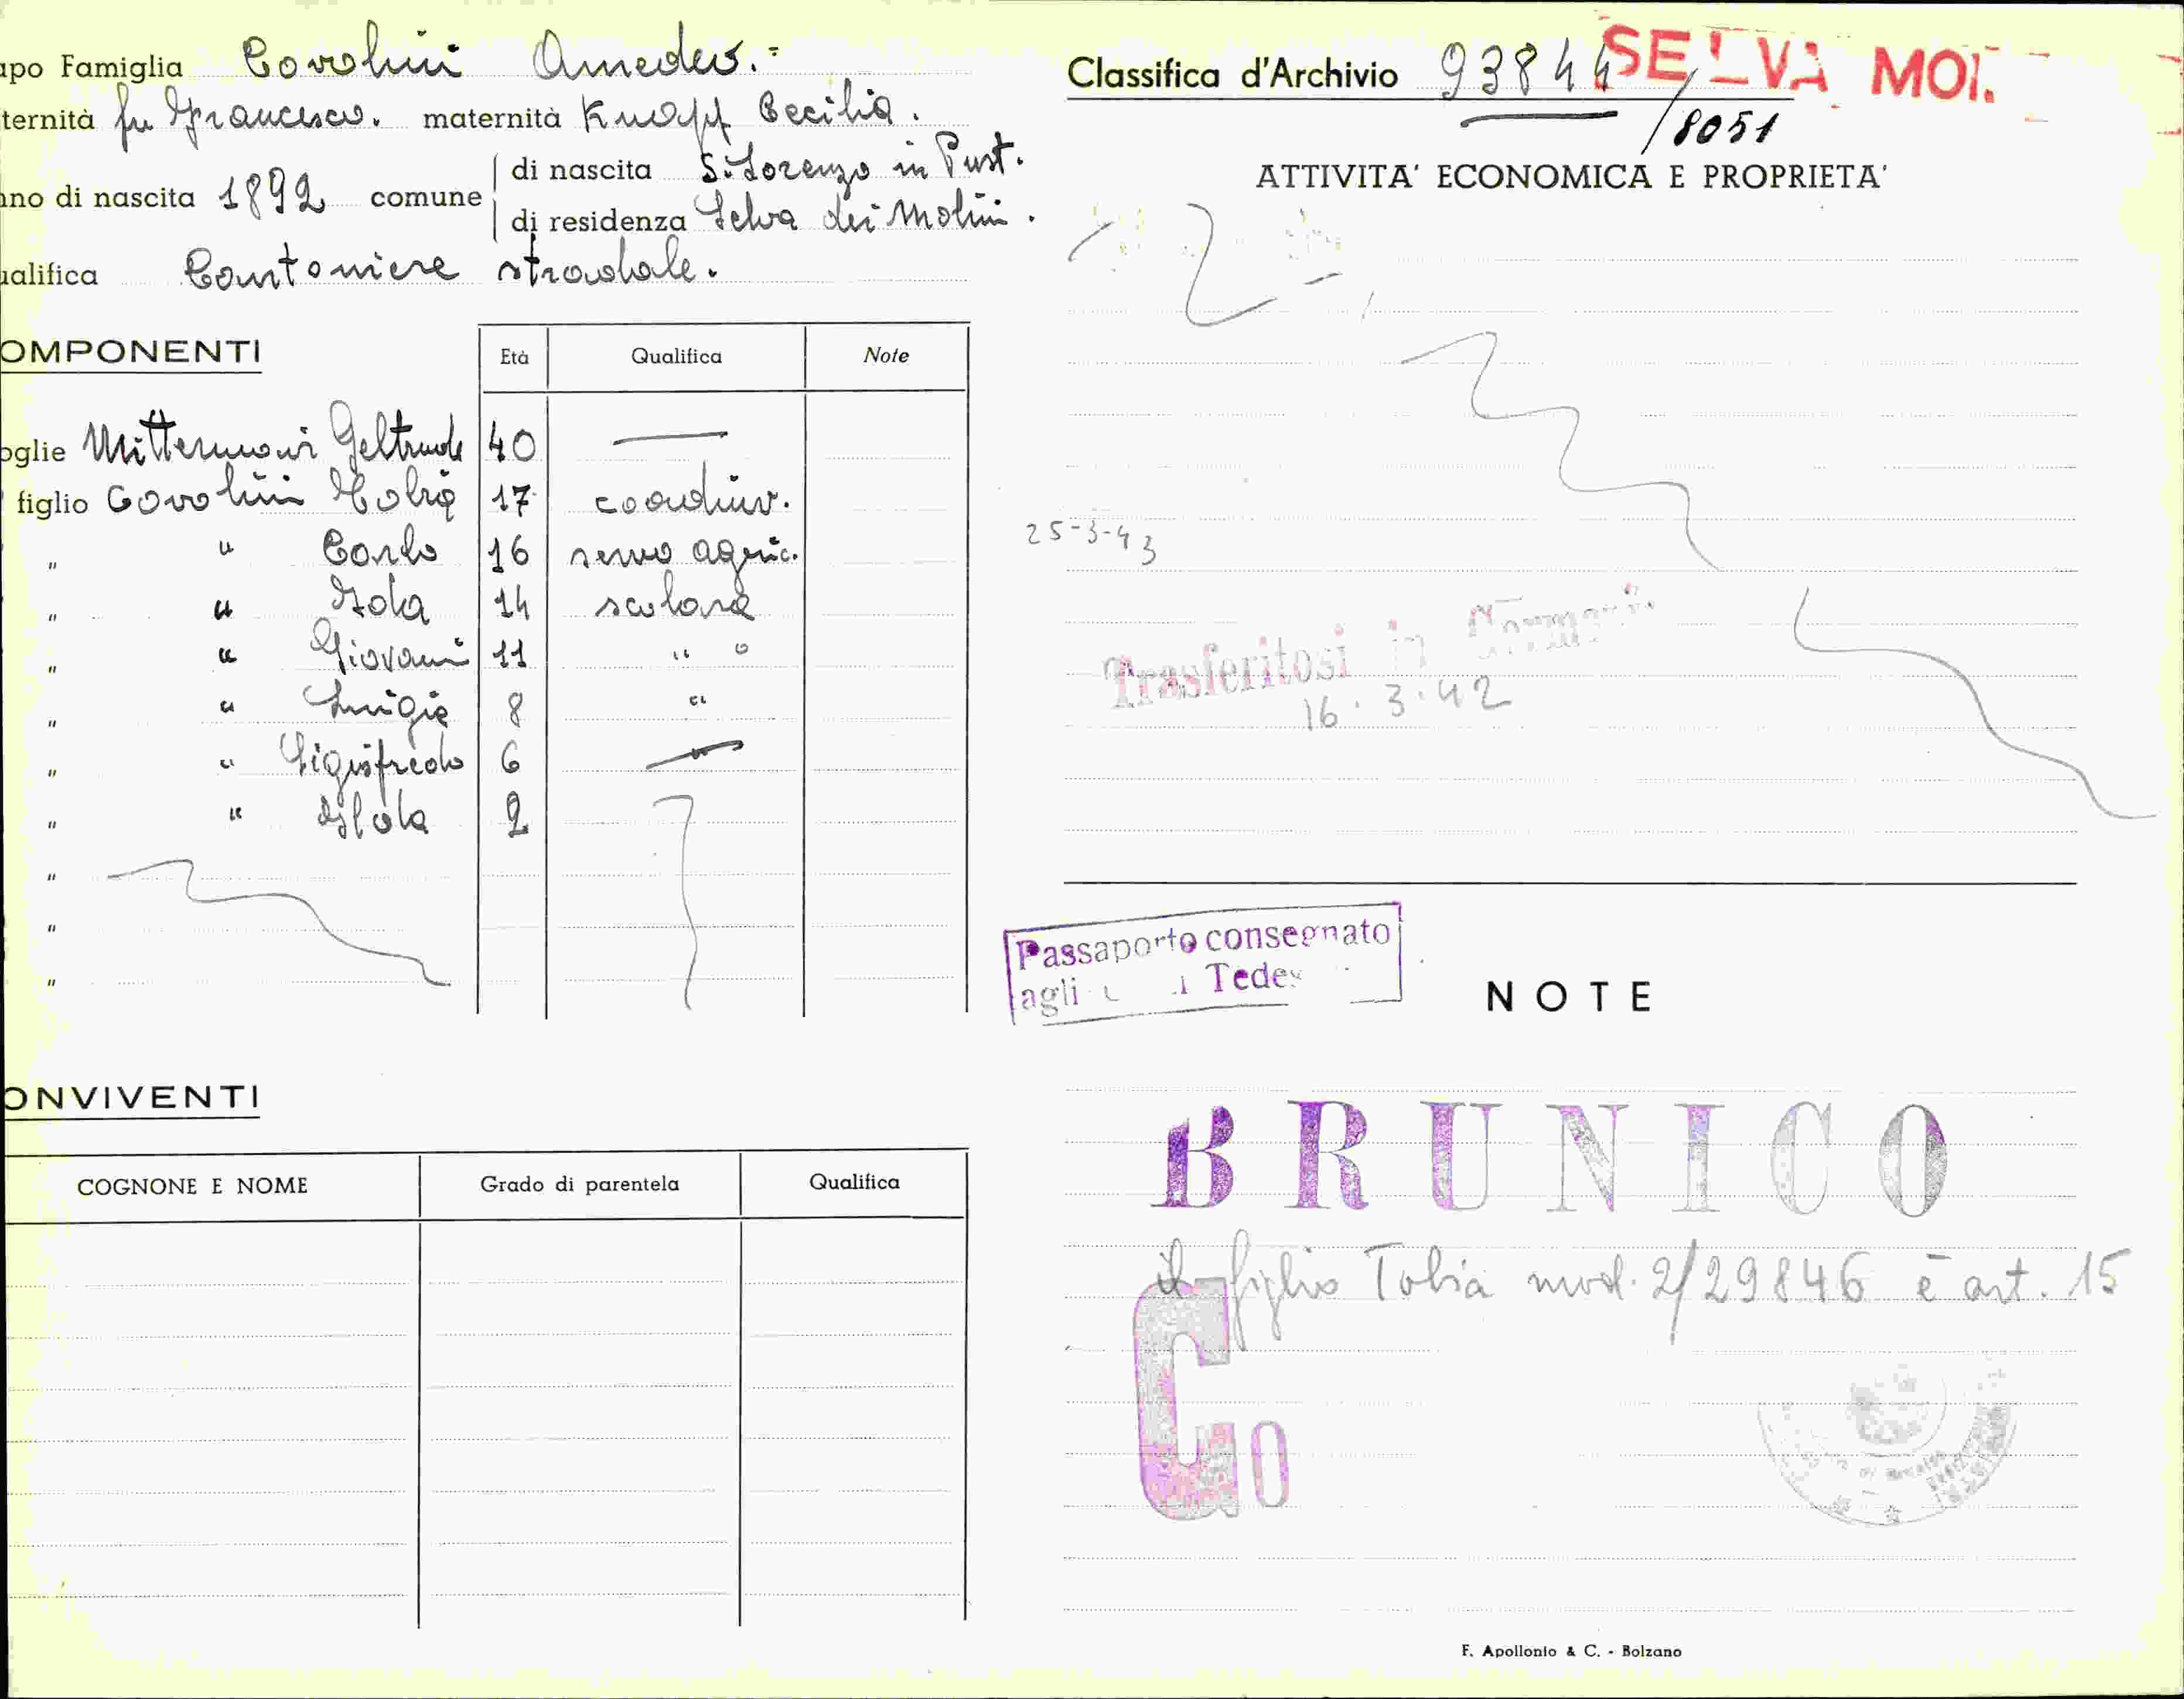 apo Famiglia Covolini Amedeo.=
ternità fu Francesco. maternità Knapp Cecilia.
ano di nascita 1892 comune di nascita S. Lorenzo in Pust.
di residenza Selva dei Molini.
ualifica Cantoniere stradale.
OMPONENTI Età Qualifica Note
oglie Mittermair Geltrude 40
figlio Covolini Tobia 17 coadiuv.
" " Carlo 16 servo agric.
" " Ida 14 scolara
" " Giovanni 11 " o
" " Luigia 8 "
" " Sigisfredo 6
" " Ilda 2
"
"
"
ONVIVENTI
COGNONE E NOME Grado di parentela Qualifica
Classifica d'Archivio 93844
/8051
SELVA MOL.
ATTIVITA' ECONOMICA E PROPRIETA'
25-3-43
Trasferitosi in
16.3.42
Passaporto consegnato
agli
NOTE
BRUNICO
il figlio Tobia mod. 2/29846 è art. 15
Go
F. Apollonio & C. - Bolzano